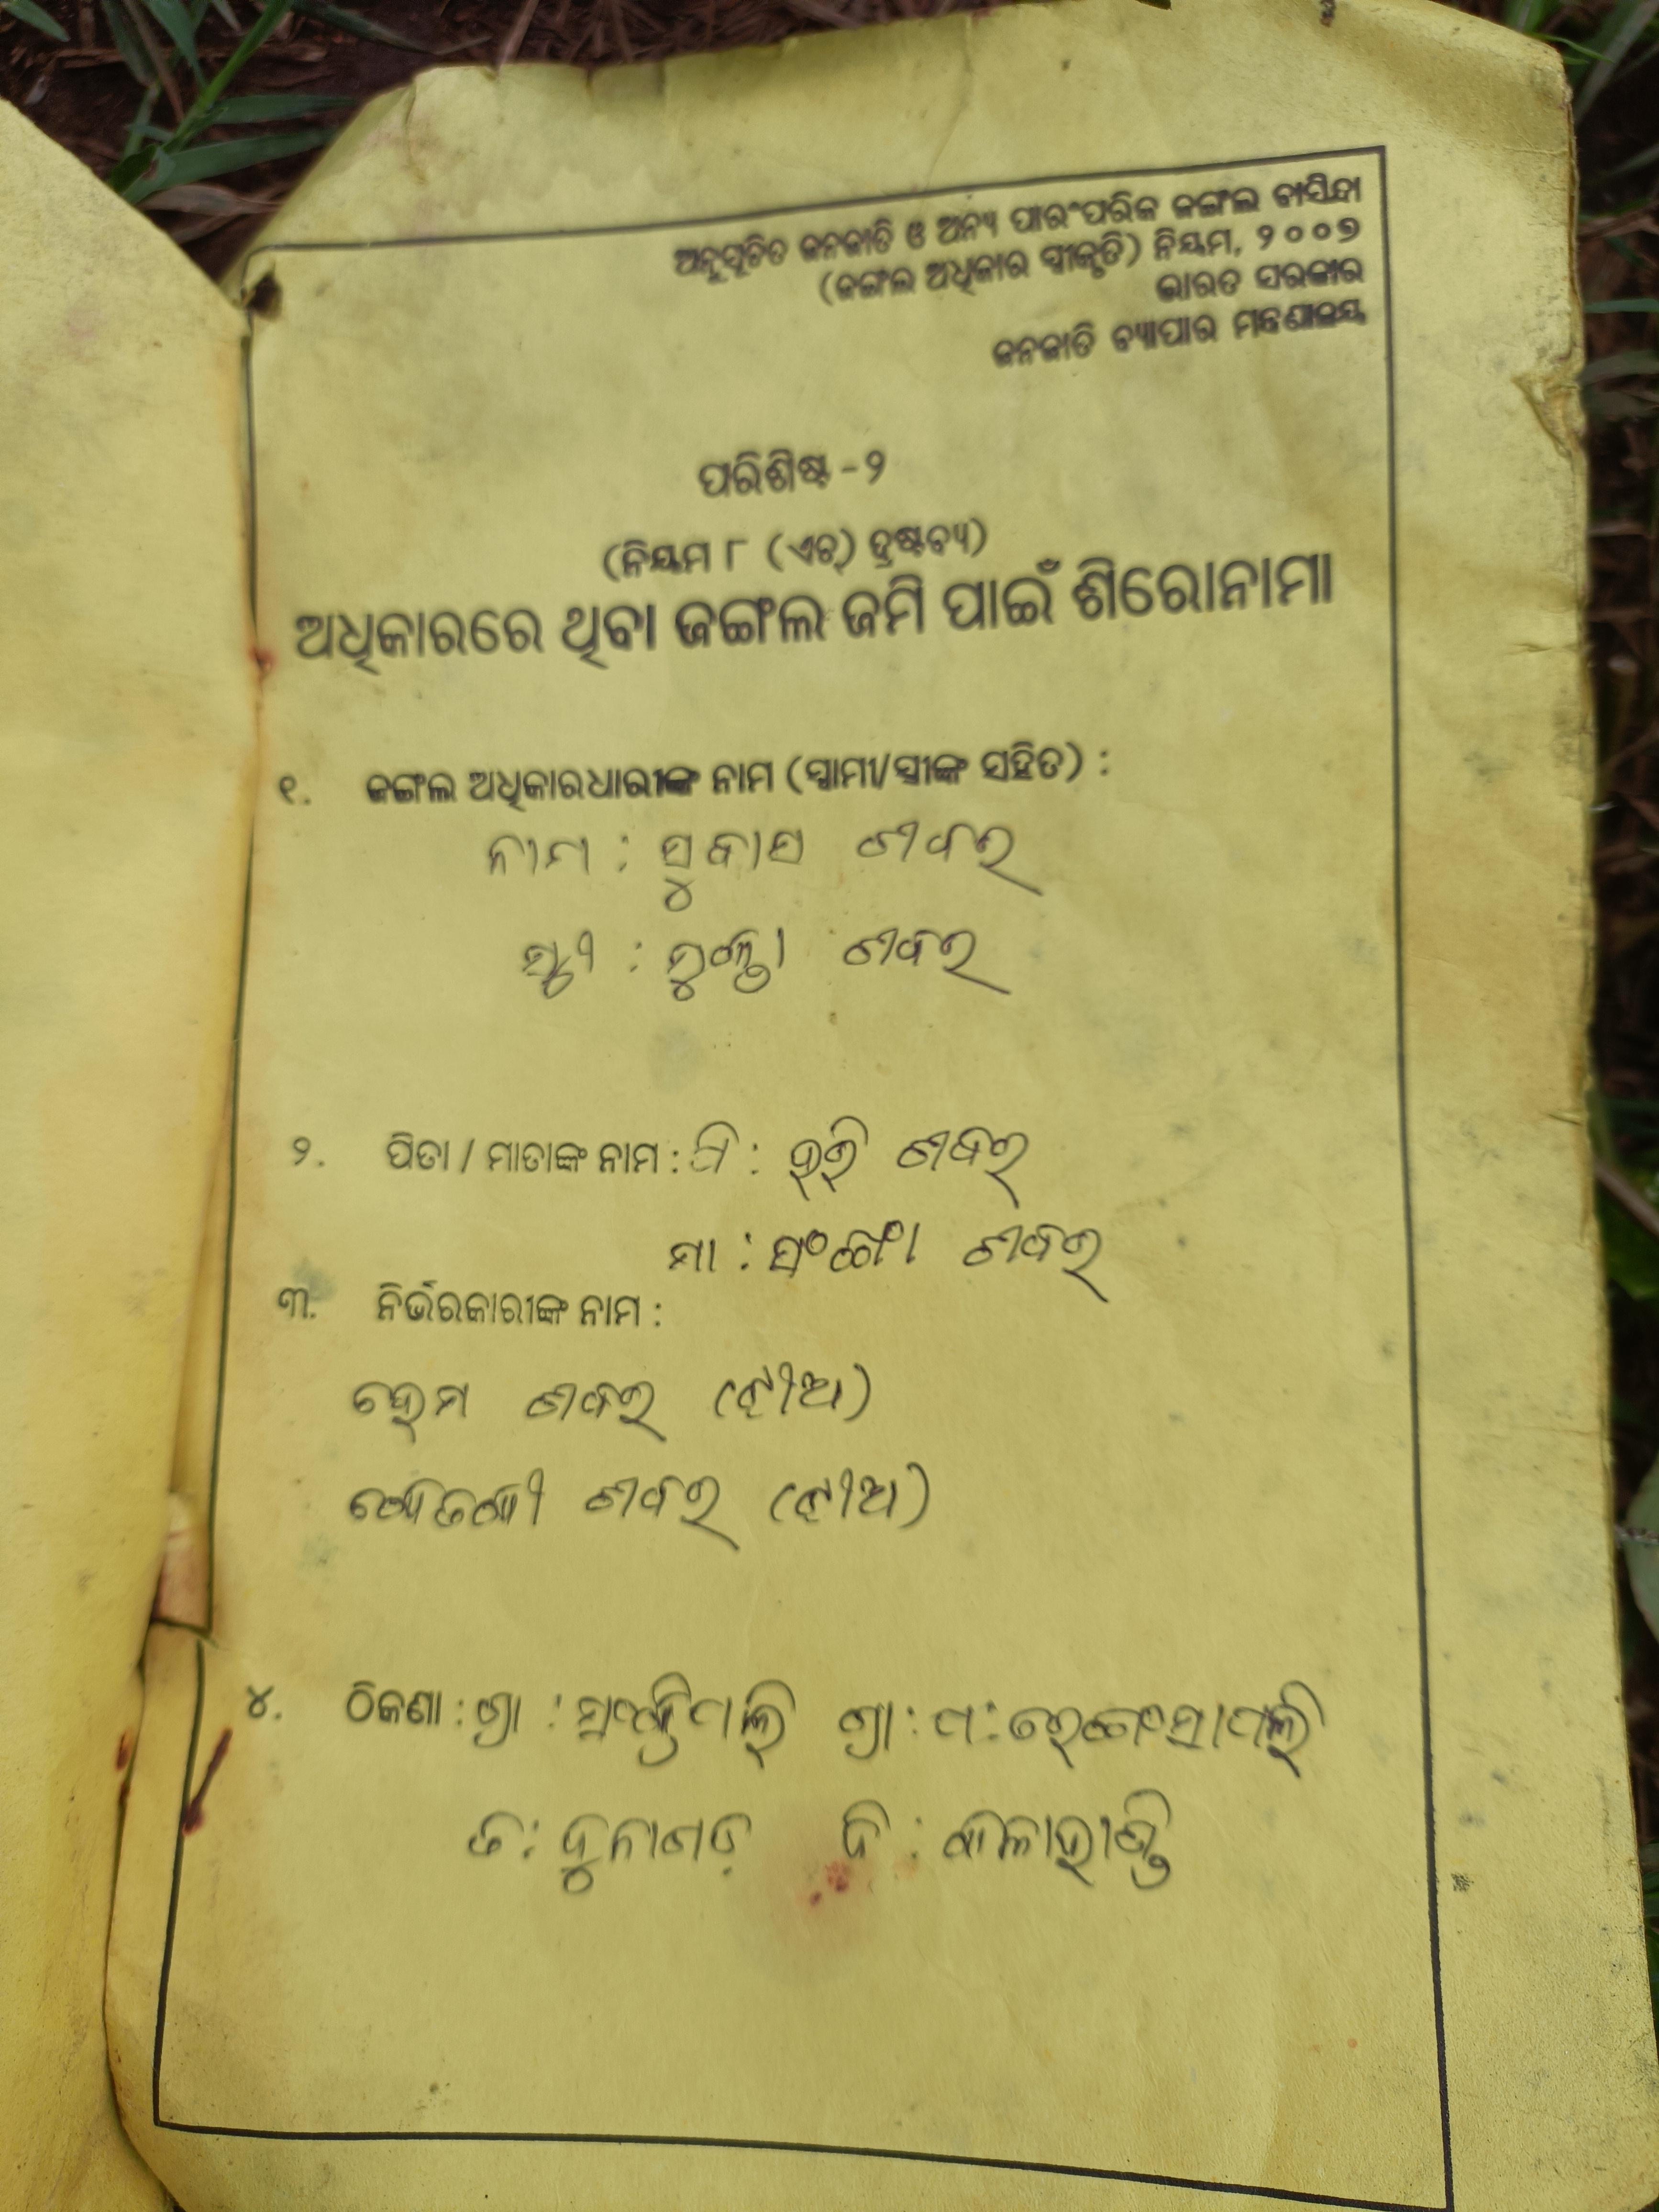 ଅନୁସୂଚିତ ଜନଜାତି ଓ ଅନ୍ୟ ପାରଂପରିକ ଜଙ୍ଗଲ ବାସିନ୍ଦା
(ଜଙ୍ଗଲ ଅଧିକାର ସ୍ୱୀକୃତି) ନିୟମ, ୨୦୦୭
ଭାରତ ସରକାର
ଜନଜାତି ବ୍ୟାପାର ମନ୍ତ୍ରଣାଳୟ
ପରିଶିଷ୍ଟ -୨
(ନିୟମ ୮ (ଏଚ୍) ଦ୍ରଷ୍ଟବ୍ୟ)
ଅଧିକାରରେ ଥିବା ଜଙ୍ଗଲ ଜମି ପାଇଁ ଶିରୋନାମା
୧. ଜଙ୍ଗଲ ଅଧିକାରଧାରୀଙ୍କ ନାମ (ସ୍ୱାମୀ/ସ୍ତ୍ରୀଙ୍କ ସହିତ) :
ନାମ : ସୁବାସ ଶବର
ସ୍ତ୍ରୀ : ଶବର
୨. ପିତା / ମାତାଙ୍କ ନାମ : ପି : ହରି ଶବର
ମା : ଶବର
୩. ନିର୍ଭରକାରୀଙ୍କ ନାମ :
ହେମ ଶବର (ଝୀଅ)
ଶବର (ଝୀଅ)
୪. ଠିକଣା : ଗ୍ରା : ଗ୍ରା : ପ :
ତ : ଜୁନାଗଡ଼ ଜି : କଳାହାଣ୍ଡି